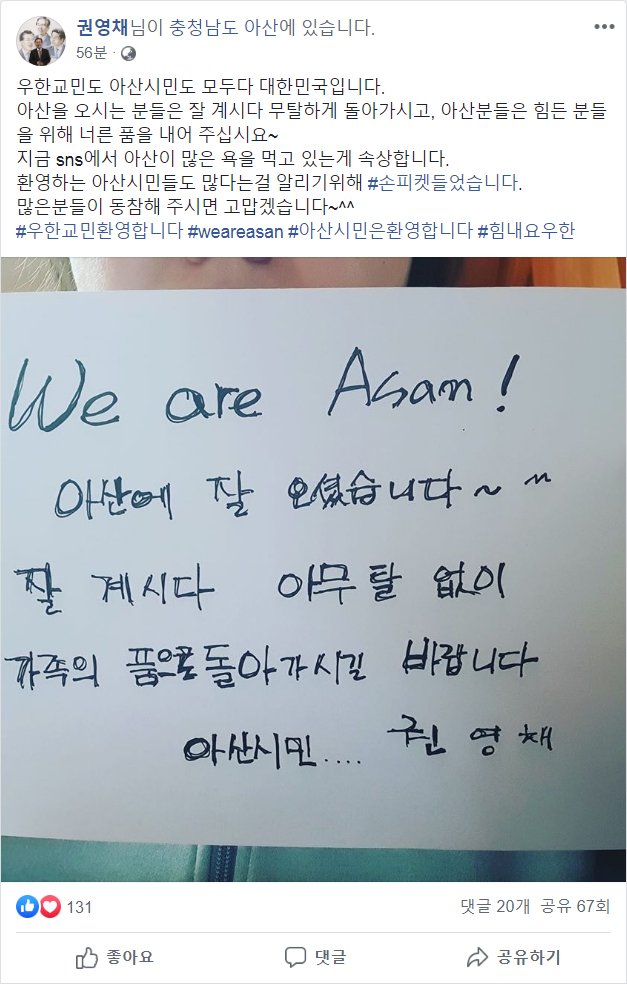 권영채님이 충청남도 아산에 있습니다.
56분 ·
우한교민도 아산시민도 모두다 대한민국입니다.
아산을 오시는 분들은 잘 계시다 무탈하게 돌아가시고, 아산분들은 힘든 분들
을 위해 너른 품을 내어 주십시요~
지금 sns에서 아산이 많은 욕을 먹고 있는게 속상합니다.
환영하는 아산시민들도 많다는걸 알리기위해 #손피켓들었습니다.
많은분들이 동참해 주시면 고맙겠습니다~^^
#우한교민환영합니다 #weareasan #아산시민은환영합니다 #힘내요우한
We are Asan!
아산에 잘 오셨습니다~ ^^
잘 계시다 아무 탈 없이
가족의 품으로 돌아가시길 바랍니다
아산시민.... 권영채
131
댓글 20개 공유 67회
좋아요 댓글 공유하기